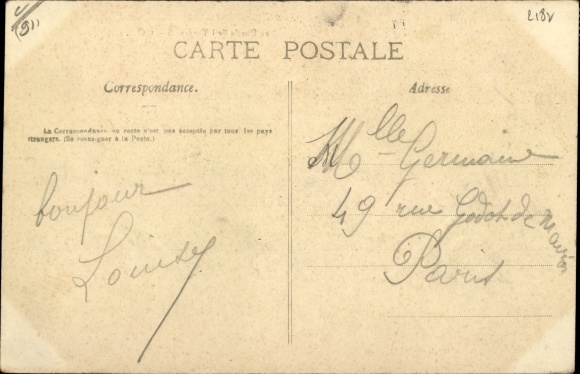 (911
2182
CARTE POSTALE
Correspondance.
La Correspondance au recto n'est pas acceptée par tous les pays
étrangers. (Se renseigner à la Poste.)
bonjour
Louise
Adresse
Mlle Germaine
49 rue Godot de Mauroi
Paris